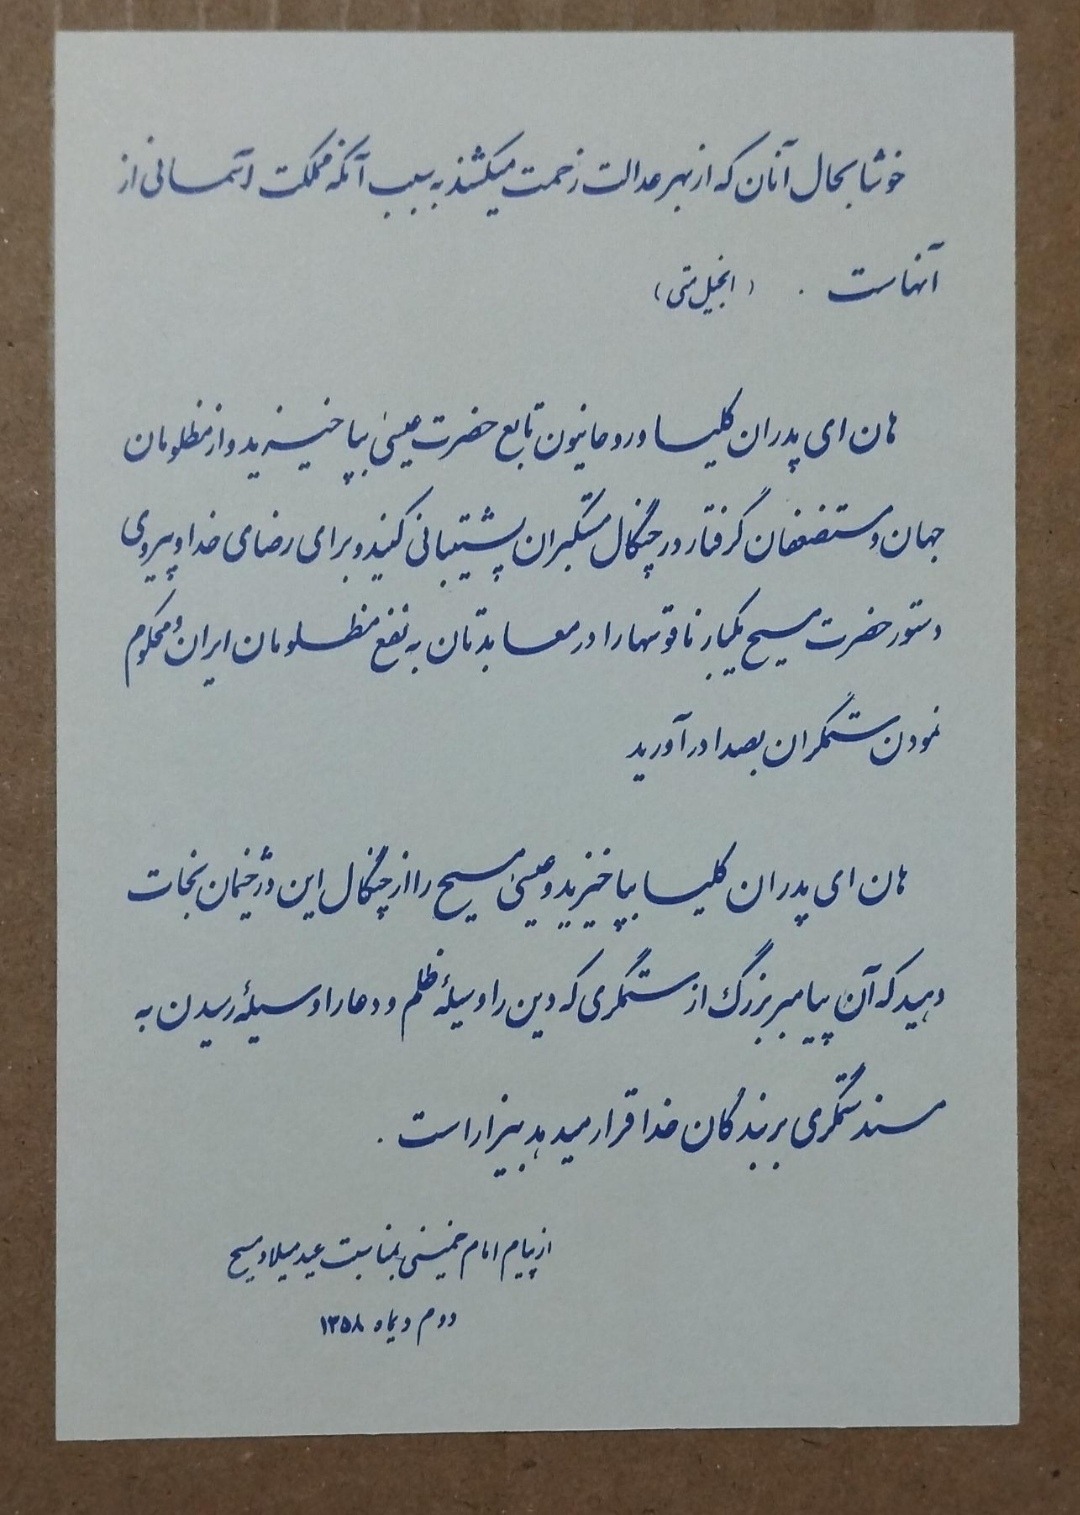 خوشا بحال آنان که از بهر عدالت زحمت میکشند به سبب آنکه مملکت آسمانی از
آنهاست . (انجیل متی)
هان ای پدران کلیسا و روحانیون تابع حضرت عیسی بپاخیزید و از مظلومان
جهان و مستضعفان گرفتار در چنگال مستکبران پشتیبانی کنید و برای رضای خدا و پیروی
دستور حضرت مسیح یکبار ناقوسها را در معابدتان به نفع مظلومان ایران و محکوم
نمودن ستمگران بصدا درآورید
هان ای پدران کلیسا بپاخیزید و عیسی مسیح را از چنگال این دژخیمان نجات
دهید که آن پیامبر بزرگ از ستمگری که دین را وسیلهٔ ظلم و دعا را وسیلهٔ رسیدن به
مسند ستمگری بر بندگان خدا قرار میدهد بیزار است .
از پیام امام خمینی بمناسبت عید میلاد مسیح
دوم دیماه ۱۳۵۸